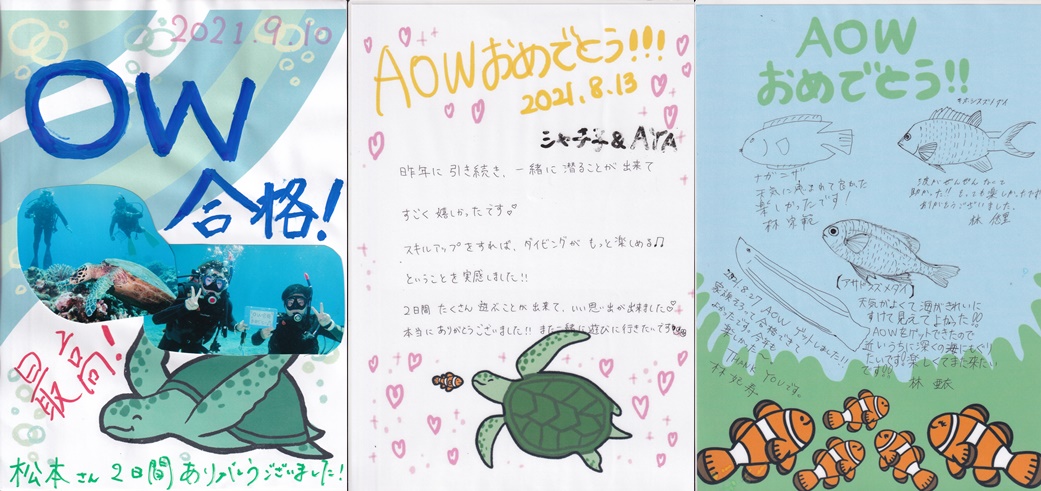 2021.9.10
OW
合格!
最高!
松本さん 2日間 ありがとうございました!
AOWおめでとう!!!
2021.8.13
シャチ子&AYA
昨年に引き続き、一緒に潜ることが出来て
すごく嬉しかったです
スキルアップをすれば、ダイビングがもっと楽しめる♫
ということを実感しました!!
2日間たくさん遊ぶことが出来て、いい思い出が出来ました
本当にありがとうございました!! また一緒に遊びに行きたいです
AOW
おめでとう!!
ナガニザ
天気に恵まれて
楽しかったです!
波がぜんぜんなくて
助かった!! とっても楽しかったです
ありがとうございました。
林 悠里
【アサドスズメダイ】
天気がよくて海がきれいに
すけて見えてよかった!!
AOWをゲットできたので
近いうちに深くの海にもぐり
たいです! 楽しくてまた来たい
です!!
林
2021.8.27 AOW ゲットしました!!
家族そろって合格できて
よかったです。
楽しかった〜
THANK YOUです。